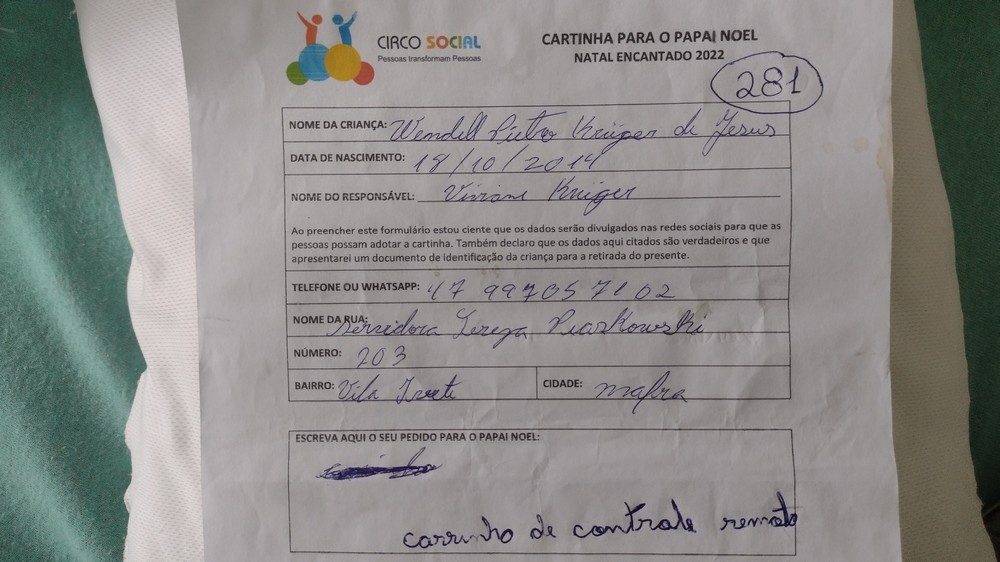 CIRCO SOCIAL
Pessoas transformam Pessoas
CARTINHA PARA O PAPAI NOEL
NATAL ENCANTADO 2022
281
NOME DA CRIANÇA: Wendell Pietro Krüger de Jesus
DATA DE NASCIMENTO: 18/10/2014
NOME DO RESPONSÁVEL: Viviane Krüger
Ao preencher este formulário estou ciente que os dados serão divulgados nas redes sociais para que as
pessoas possam adotar a cartinha. Também declaro que os dados aqui citados são verdadeiros e que
apresentarei um documento de identificação da criança para a retirada do presente.
TELEFONE OU WHATSAPP: 47 997057102
NOME DA RUA: Servidora Tereza
NÚMERO: 203
BAIRRO: Vila Ivete
CIDADE: mafra
ESCREVA AQUI O SEU PEDIDO PARA O PAPAI NOEL:
carrinho de controle remoto